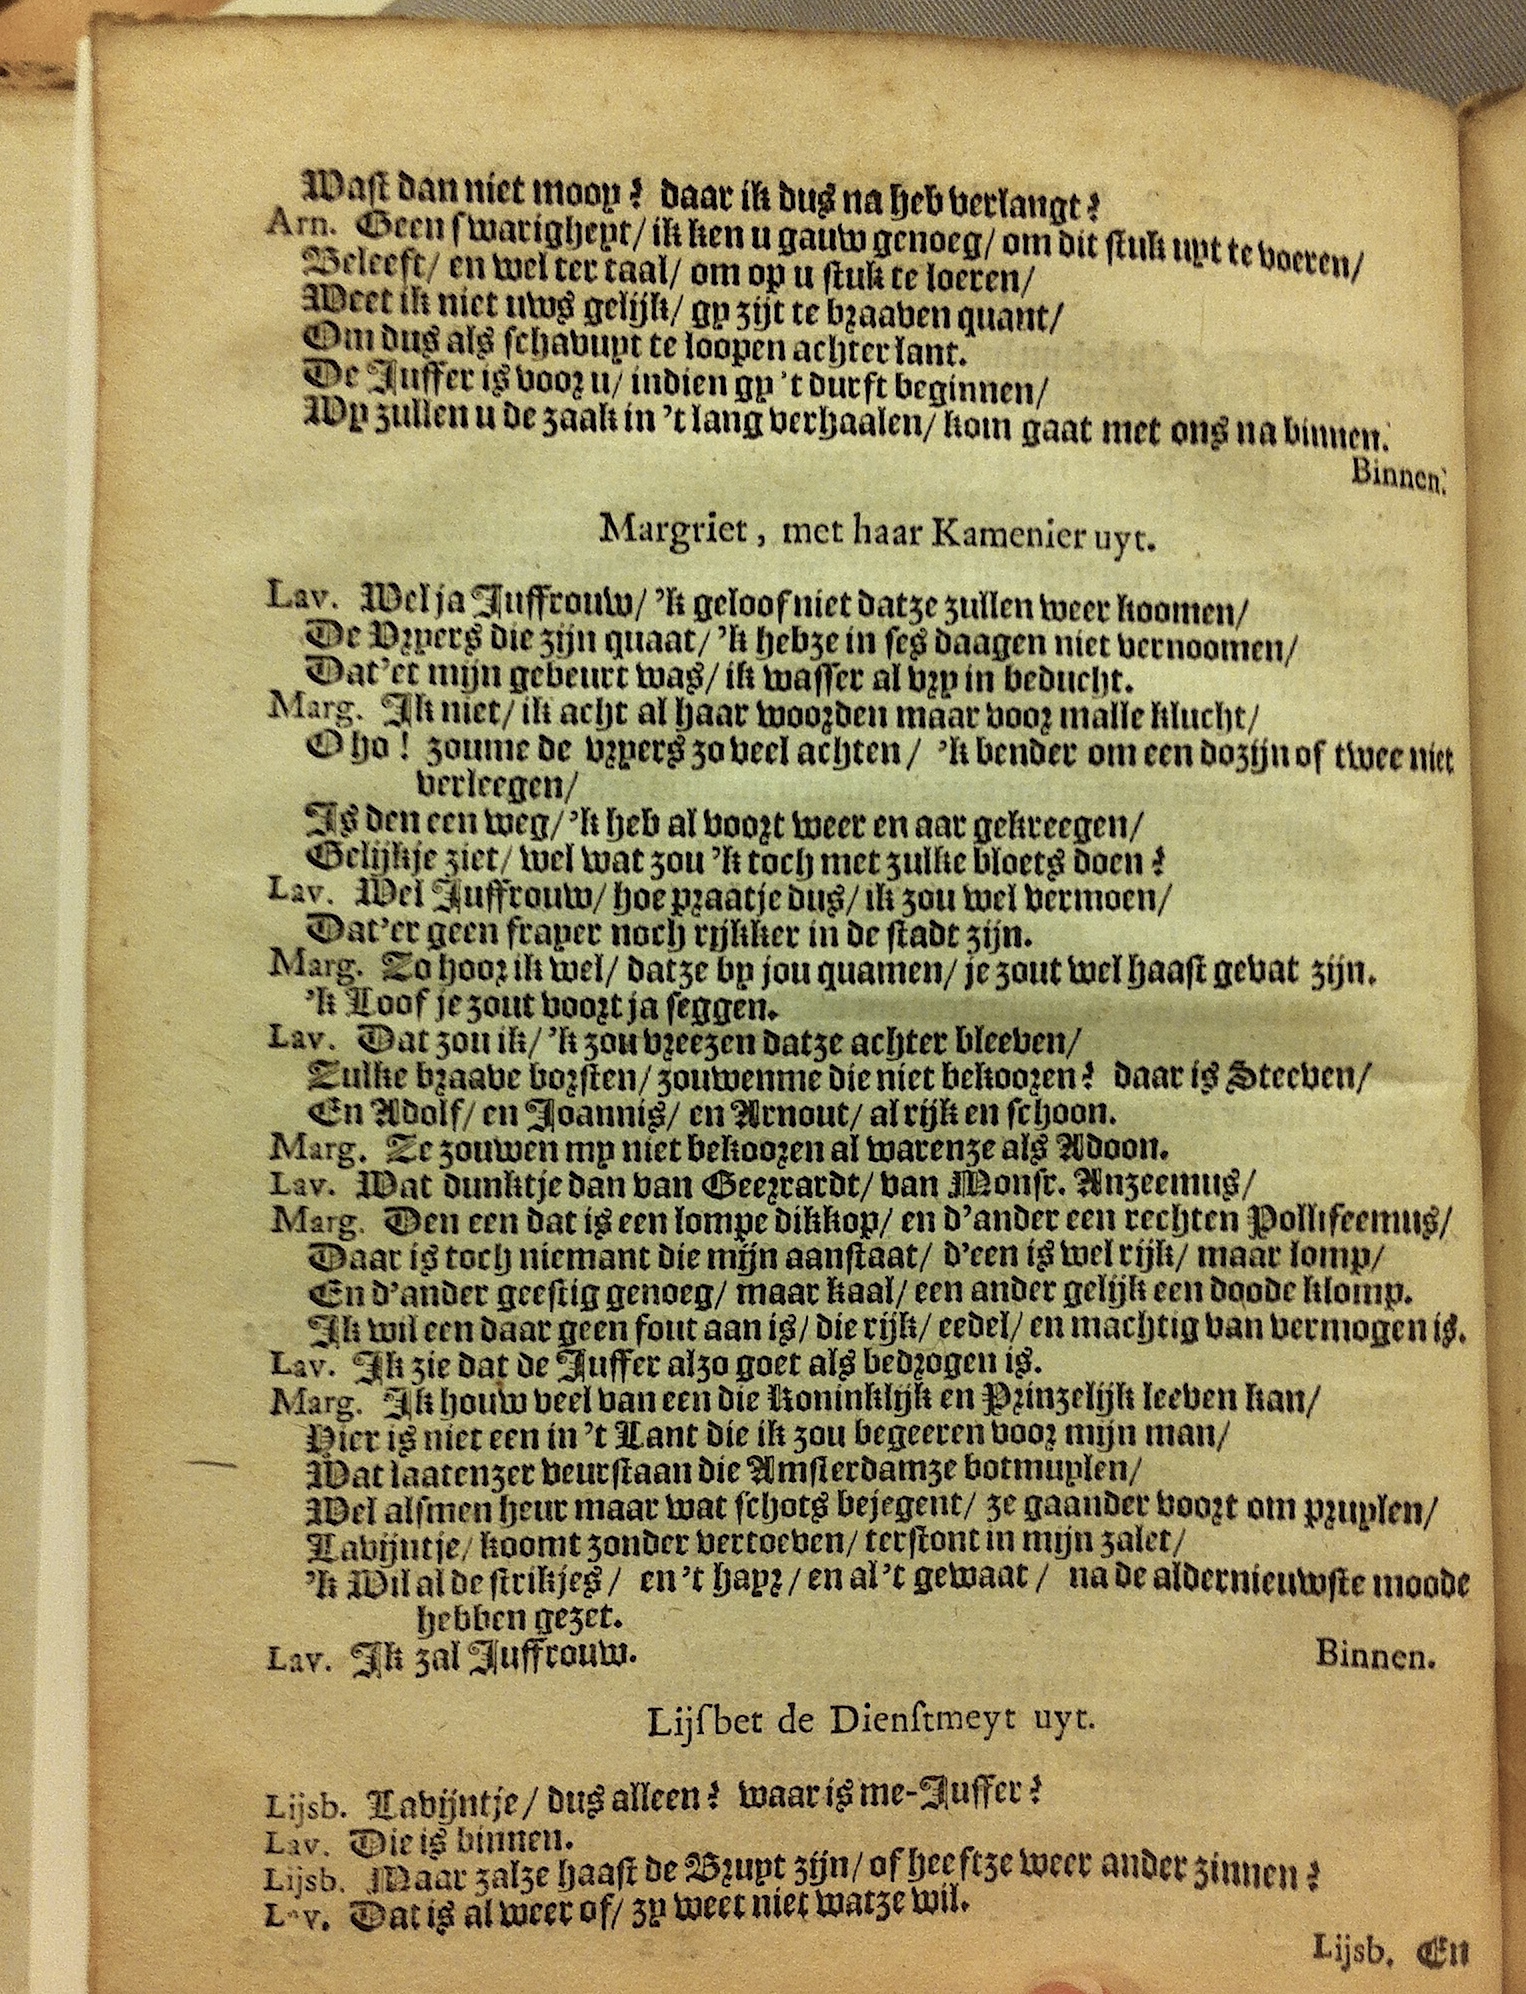 Wast dan niet mooy? daar ik dus na heb verlangt?
Arn. Geen swarigheyt/ ik ken u gauw genoeg/ om dit stuk uyt te voeren/
Beleeft/ en wel ter taal/ om op u stuk te loeren/
Weet ik niet uws gelijk/ gy zijt te braaven quant/
Om dus als schavuyt te loopen achter lant.
De Juffer is voor u/ indien gy 't durft beginnen/
Wy zullen u de zaak in 't lang verhaalen/ kom gaat met ons na binnen.
Binnen.
Margriet, met haar Kamenier uyt.
Lav. Wel ja Juffrouw/ 'k geloof niet datze zullen weer koomen/
De Vryers die zijn quaat/ 'k hebze in ses daagen niet vernoomen/
Dat'et mijn gebeurt was/ ik wasser al vry in beducht.
Marg. Ik niet/ ik acht al haar woorden maar voor malle klucht/
O ho! zoume de vryers zo veel achten/ 'k bender om een dozijn of twee niet
verleegen/
Is den een weg/ 'k heb al voort weer en aar gekreegen/
Gelijkje ziet/ wel wat zou 'k toch met zulke bloets doen?
Lav. Wel Juffrouw/ hoe praatje dus/ ik zou wel vermoen/
Dat'er geen frayer noch rijkker in de stadt zijn.
Marg. Zo hoor ik wel/ datze by jou quamen/ je zout wel haast gevat zijn.
'k Loof je zout voort ja seggen.
Lav. Dat zou ik/ 'k zou vreezen datze achter bleeven/
Zulke braave borsten/ zouwenme die niet bekooren? daar is Steeven/
En Adolf/ en Joannis/ en Arnout/ al rijk en schoon.
Marg. Ze zouwen my niet bekooren al warenze als Adoon.
Lav. Wat dunktje dan van Geerrardt/ van Monsr. Anzeemus/
Marg. Den een dat is een lompe dikkop/ en d'ander een rechten Pollifeemus/
Daar is toch niemant die mijn aanstaat/ d'een is wel rijk/ maar lomp/
En d'ander geestig genoeg/ maar kaal/ een ander gelijk een doode klomp.
Ik wil een daar geen fout aan is/ die rijk/ eedel/ en machtig van vermogen is.
Lav. Ik zie dat de Juffer alzo goet als bedrogen is.
Marg. Ik houw veel van een die Koninklijk en Prinzelijk leeven kan/
Hier is niet een in 't Lant die ik zou begeeren voor mijn man/
Wat laatenzer veurstaan die Amsterdamze botmuylen/
Wel alsmen heur maar wat schots bejegent/ ze gaander voort om pruylen/
Lavijntje/ koomt zonder vertoeven/ terstont in mijn zalet/
'k Wil al de strikjes/ en 't hayr/ en al 't gewaat/ na de aldernieuwste moode
hebben gezet.
Lav. Ik zal Juffrouw. Binnen.
Lijsbet de Dienstmeyt uyt.
Lijsb. Lavijntje/ dus alleen? waar is me-Juffer?
Lav. Die is binnen.
Lijsb. Maar zalze haast de Bruyt zijn/ of heeftze weer ander zinnen?
Lav. Dat is al weer of/ zy weet niet watze wil.
Lijsb. En